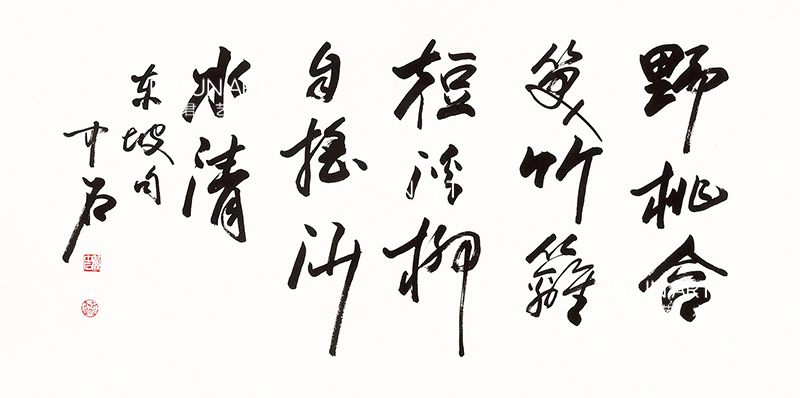 野桃含
笑竹籬
短溪柳
自摇沙
水清
东坡句
中石